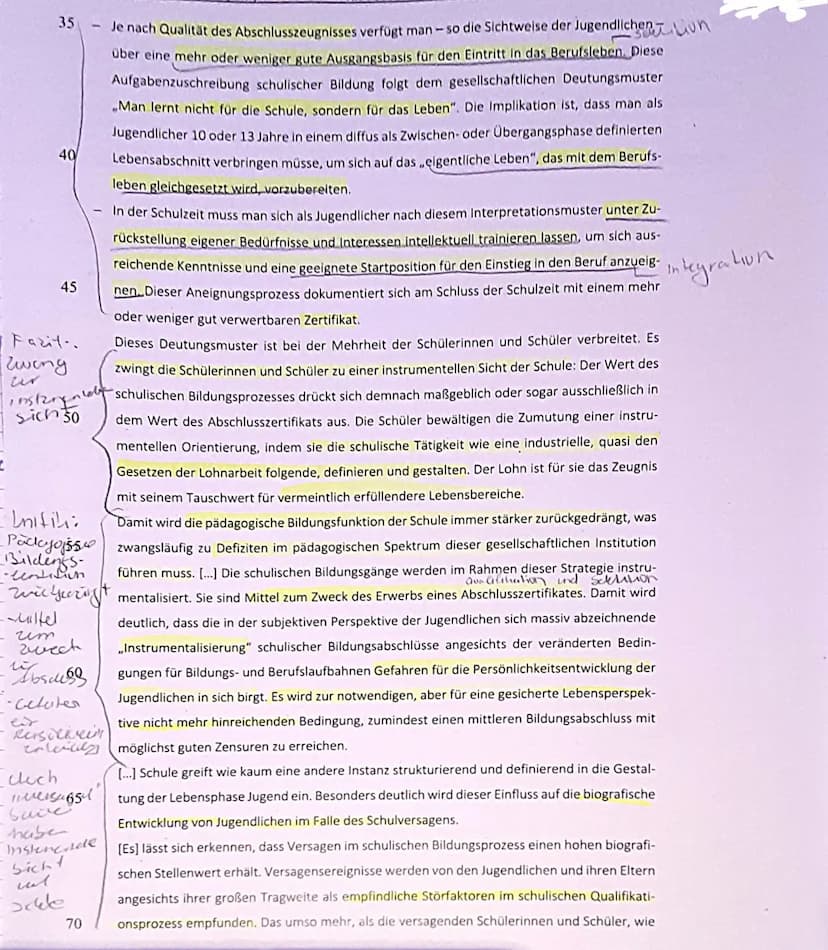 35 – Je nach Qualität des Abschlusszeugnisses verfügt man – so die Sichtweise der Jugendlichen –
über eine mehr oder weniger gute Ausgangsbasis für den Eintritt in das Berufsleben. Diese
Aufgabenzuschreibung schulischer Bildung folgt dem gesellschaftlichen Deutungsmuster
„Man lernt nicht für die Schule, sondern für das Leben“. Die Implikation ist, dass man als
Jugendlicher 10 oder 13 Jahre in einem diffus als Zwischen- oder Übergangsphase definierten
40 Lebensabschnitt verbringen müsse, um sich auf das „eigentliche Leben“, das mit dem Berufs-
leben gleichgesetzt wird, vorzubereiten.
– In der Schulzeit muss man sich als Jugendlicher nach diesem Interpretationsmuster unter Zu-
rückstellung eigener Bedürfnisse und Interessen intellektuell trainieren lassen, um sich aus-
reichende Kenntnisse und eine geeignete Startposition für den Einstieg in den Beruf anzueig-
Integration
45 nen. Dieser Aneignungsprozess dokumentiert sich am Schluss der Schulzeit mit einem mehr
oder weniger gut verwertbaren Zertifikat.
Dieses Deutungsmuster ist bei der Mehrheit der Schülerinnen und Schüler verbreitet. Es
zwingt die Schülerinnen und Schüler zu einer instrumentellen Sicht der Schule: Der Wert des
schulischen Bildungsprozesses drückt sich demnach maßgeblich oder sogar ausschließlich in
50 dem Wert des Abschlusszertifikats aus. Die Schüler bewältigen die Zumutung einer instru-
mentellen Orientierung, indem sie die schulische Tätigkeit wie eine industrielle, quasi den
Gesetzen der Lohnarbeit folgende, definieren und gestalten. Der Lohn ist für sie das Zeugnis
mit seinem Tauschwert für vermeintlich erfüllendere Lebensbereiche.
Fazit:
Zwang
zur
Damit wird die pädagogische Bildungsfunktion der Schule immer stärker zurückgedrängt, was
55 zwangsläufig zu Defiziten im pädagogischen Spektrum dieser gesellschaftlichen Institution
führen muss. [...] Die schulischen Bildungsgänge werden im Rahmen dieser Strategie instru-
und Selektion
mentalisiert. Sie sind Mittel zum Zweck des Erwerbs eines Abschlusszertifikates. Damit wird
deutlich, dass die in der subjektiven Perspektive der Jugendlichen sich massiv abzeichnende
„Instrumentalisierung“ schulischer Bildungsabschlüsse angesichts der veränderten Bedin-
60 gungen für Bildungs- und Berufslaufbahnen Gefahren für die Persönlichkeitsentwicklung der
Jugendlichen in sich birgt. Es wird zur notwendigen, aber für eine gesicherte Lebensperspek-
tive nicht mehr hinreichenden Bedingung, zumindest einen mittleren Bildungsabschluss mit
möglichst guten Zensuren zu erreichen.
Mittel
zum
Zweck
[...] Schule greift wie kaum eine andere Instanz strukturierend und definierend in die Gestal-
65 tung der Lebensphase Jugend ein. Besonders deutlich wird dieser Einfluss auf die biografische
Entwicklung von Jugendlichen im Falle des Schulversagens.
[Es] lässt sich erkennen, dass Versagen im schulischen Bildungsprozess einen hohen biografi-
schen Stellenwert erhält. Versagensereignisse werden von den Jugendlichen und ihren Eltern
angesichts ihrer großen Tragweite als empfindliche Störfaktoren im schulischen Qualifikati-
70 onsprozess empfunden. Das umso mehr, als die versagenden Schülerinnen und Schüler, wie